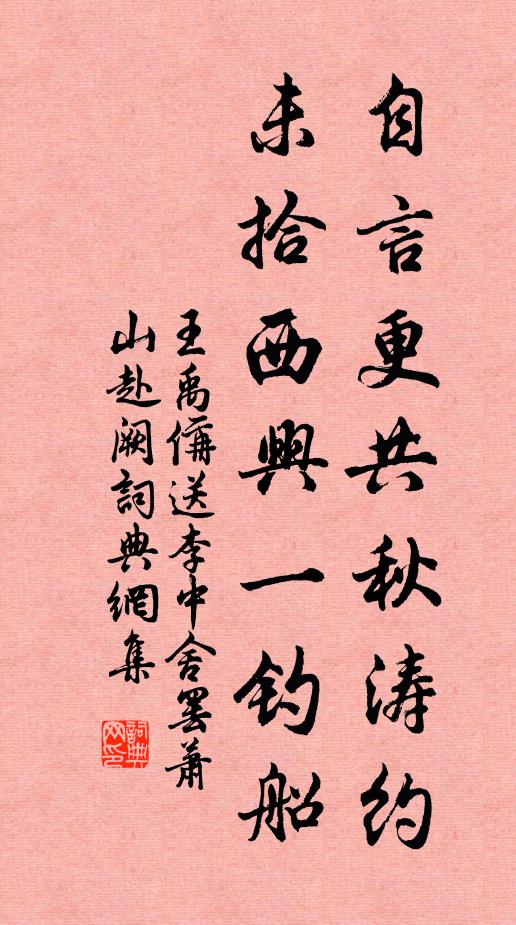 自言更共秋涛约
未拾西興一钓船
王禹偁送李中舍罢萧
山赴阙詞典網集
詞典
网印